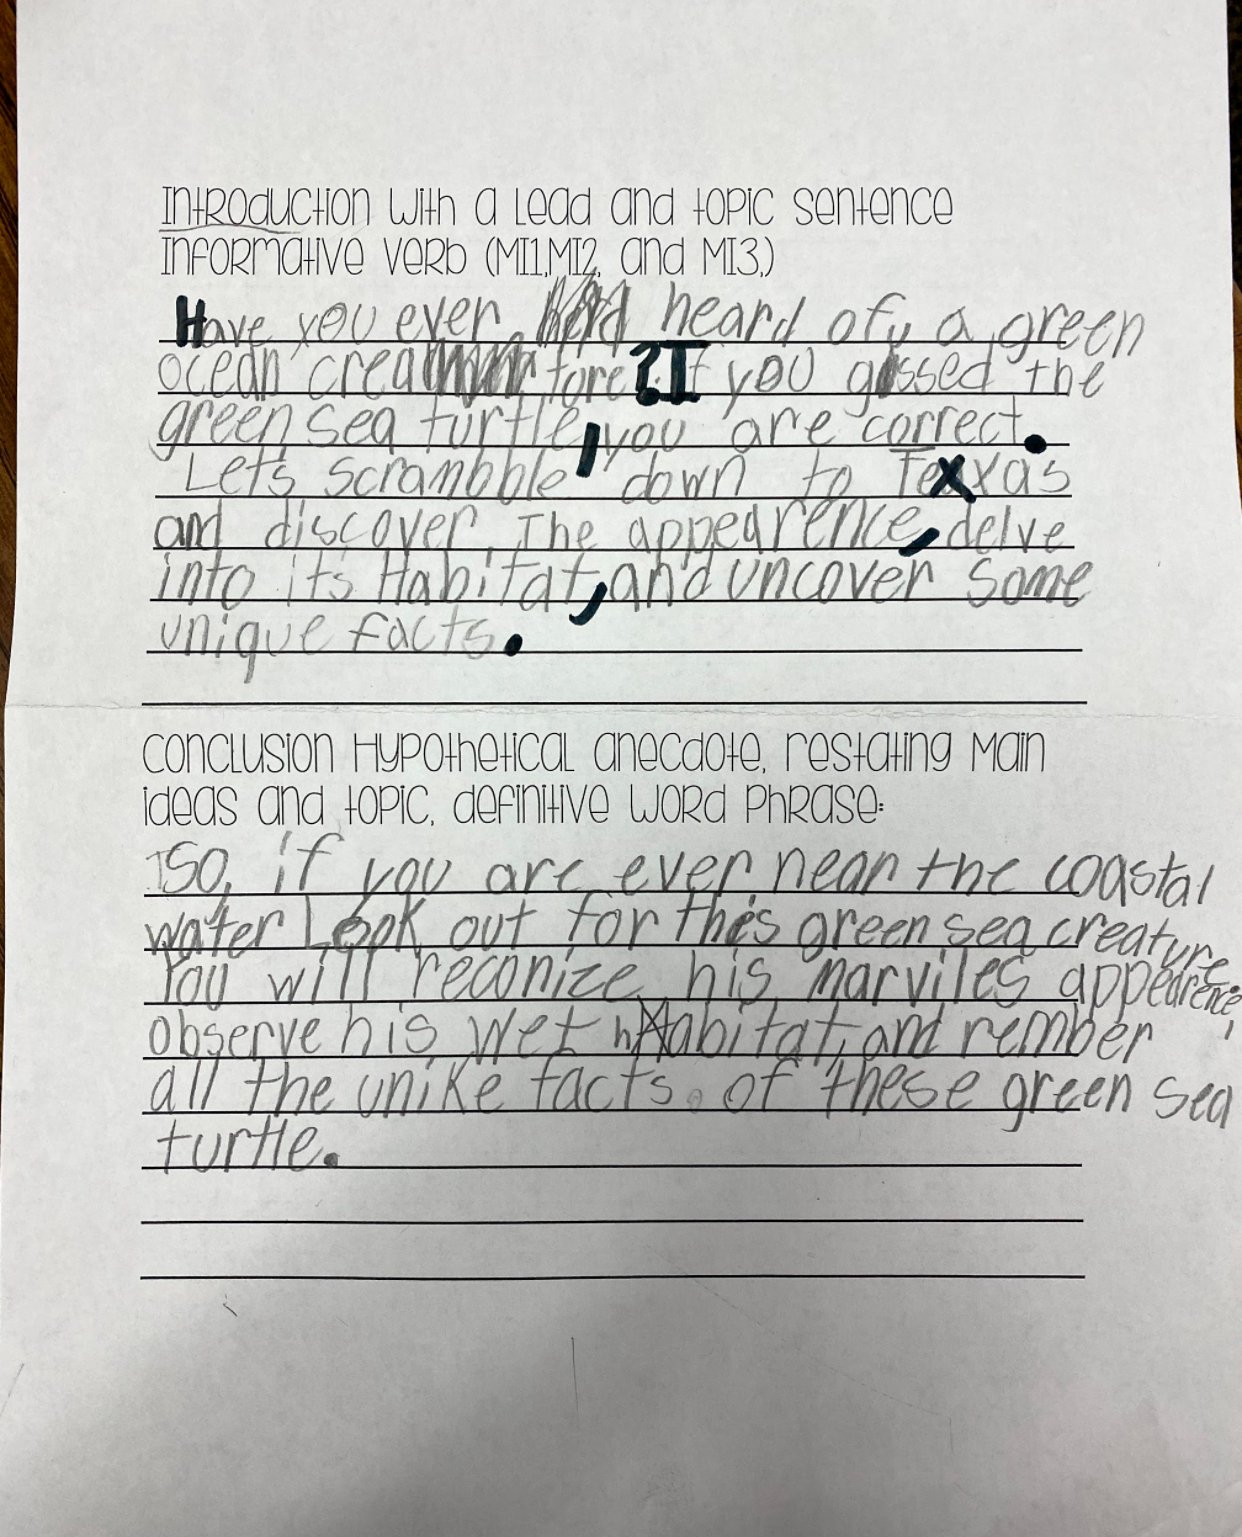 Introduction with a Lead and topic sentence
Informative Verb (MI1,MI2, and MI3,)
Have you ever heard of a green
ocean creature? If you gissed the
green sea turtle, you are correct.
Let's scrambble down to Texas
and discover. The appearence, delve
into its Habitat, and uncover some
unique facts.
Conclusion Hypothetical anecdote, restating Main
ideas and topic, definitive word phrase:
So, if you are ever near the coastal
water Look out for this green sea creature
You will reconize his marviles appearence,
observe his wet habitat, and rember
all the unike facts. of these green sea
turtle.